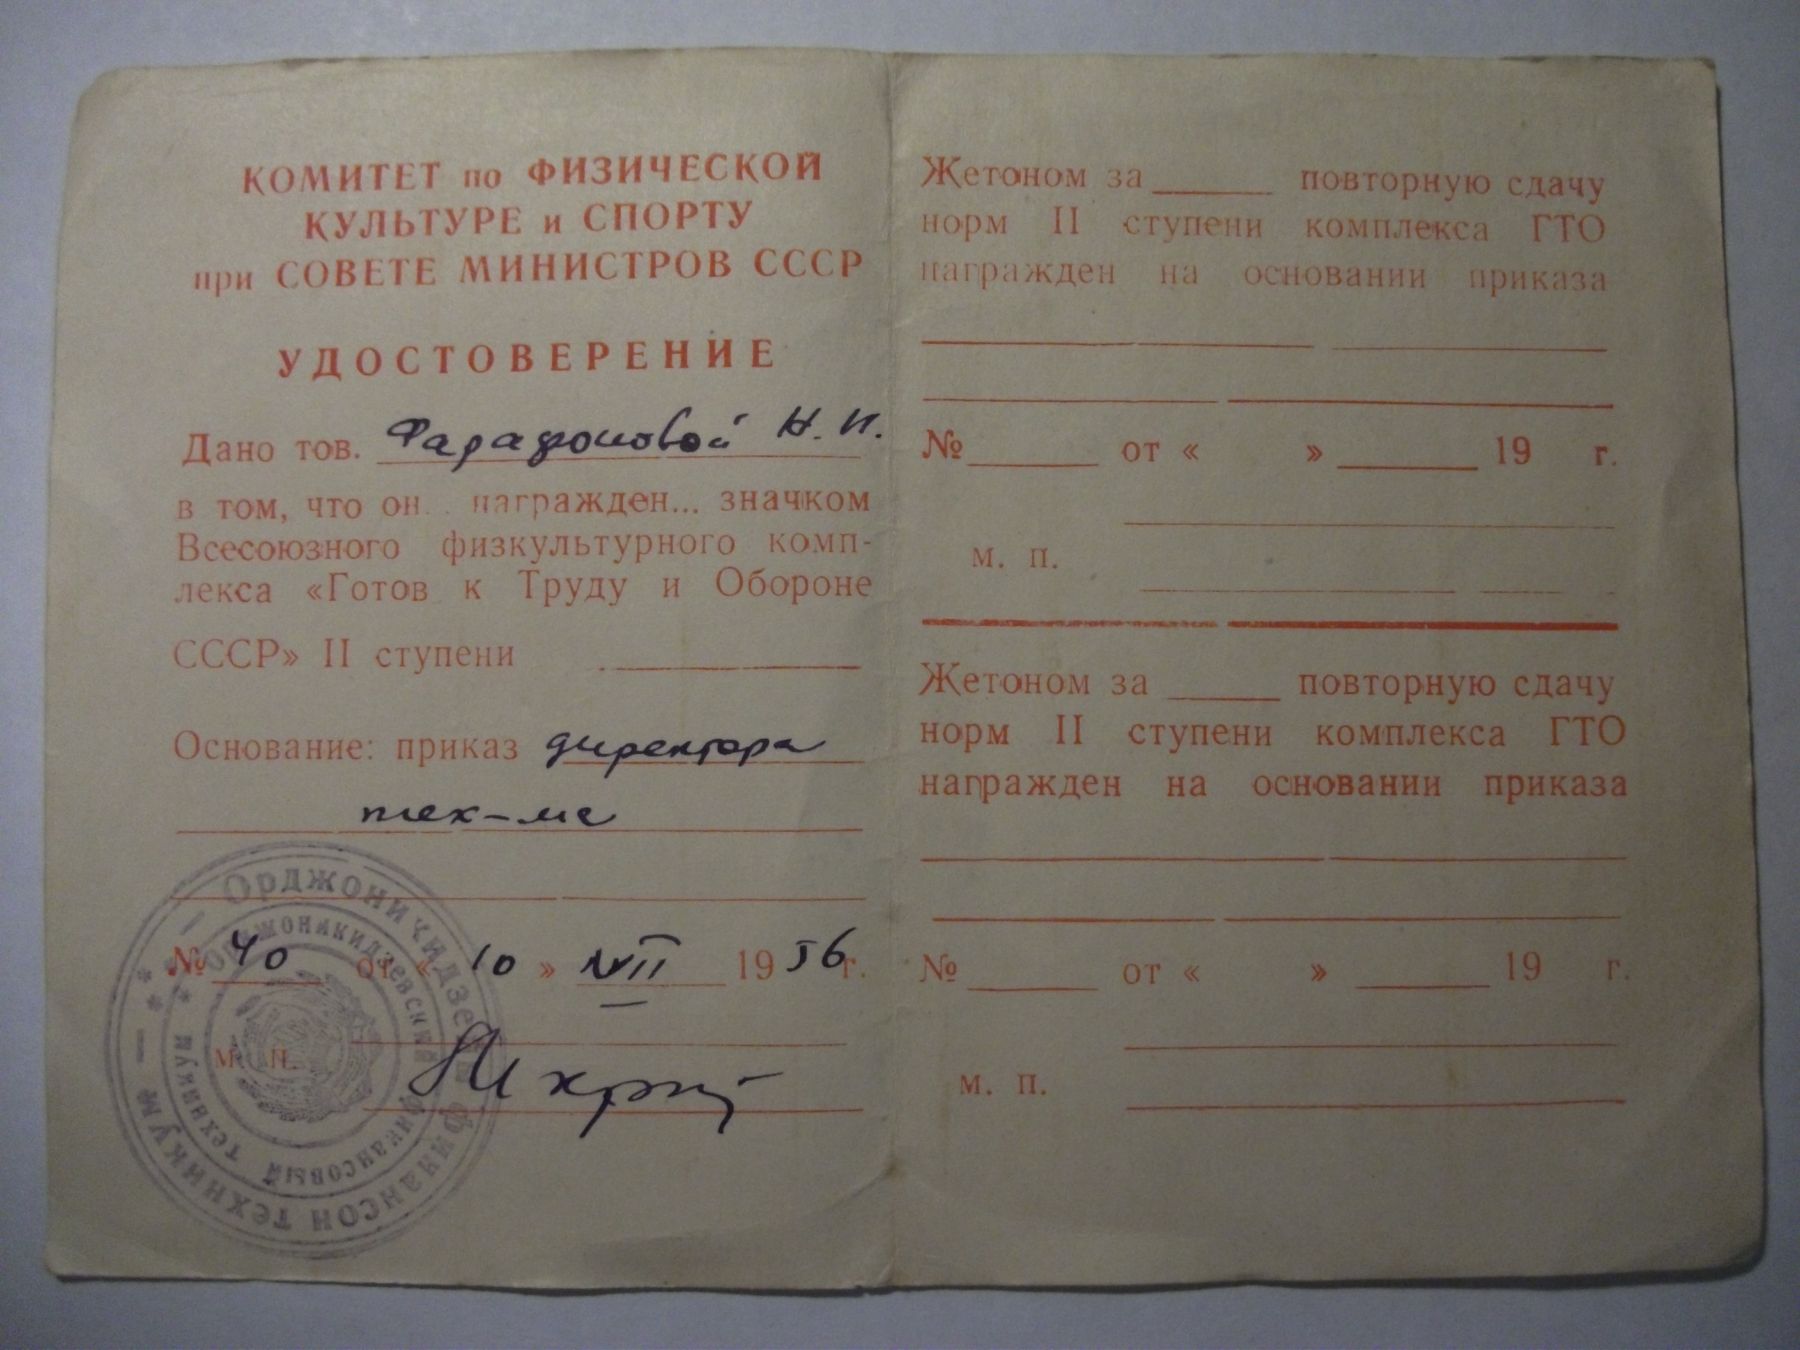 КОМИТЕТ по ФИЗИЧЕСКОЙ
КУЛЬТУРЕ и СПОРТУ
при СОВЕТЕ МИНИСТРОВ СССР
УДОСТОВЕРЕНИЕ
Дано тов. Фарафоновой Н. И.
в том, что он... награжден... значком
Всесоюзного физкультурного комп-
лекса «Готов к Труду и Обороне
СССР» II ступени
Основание: приказ директора
тех-ма
№ 40 от « 10 » VII 1956 г.
М. П.
Орджоникидзевский финансовый техникум
Жетоном за повторную сдачу
норм II ступени комплекса ГТО
награжден на основании приказа
№ от « » 19 г.
м. п.
Жетоном за повторную сдачу
норм II ступени комплекса ГТО
награжден на основании приказа
№ от « » 19 г.
м. п.